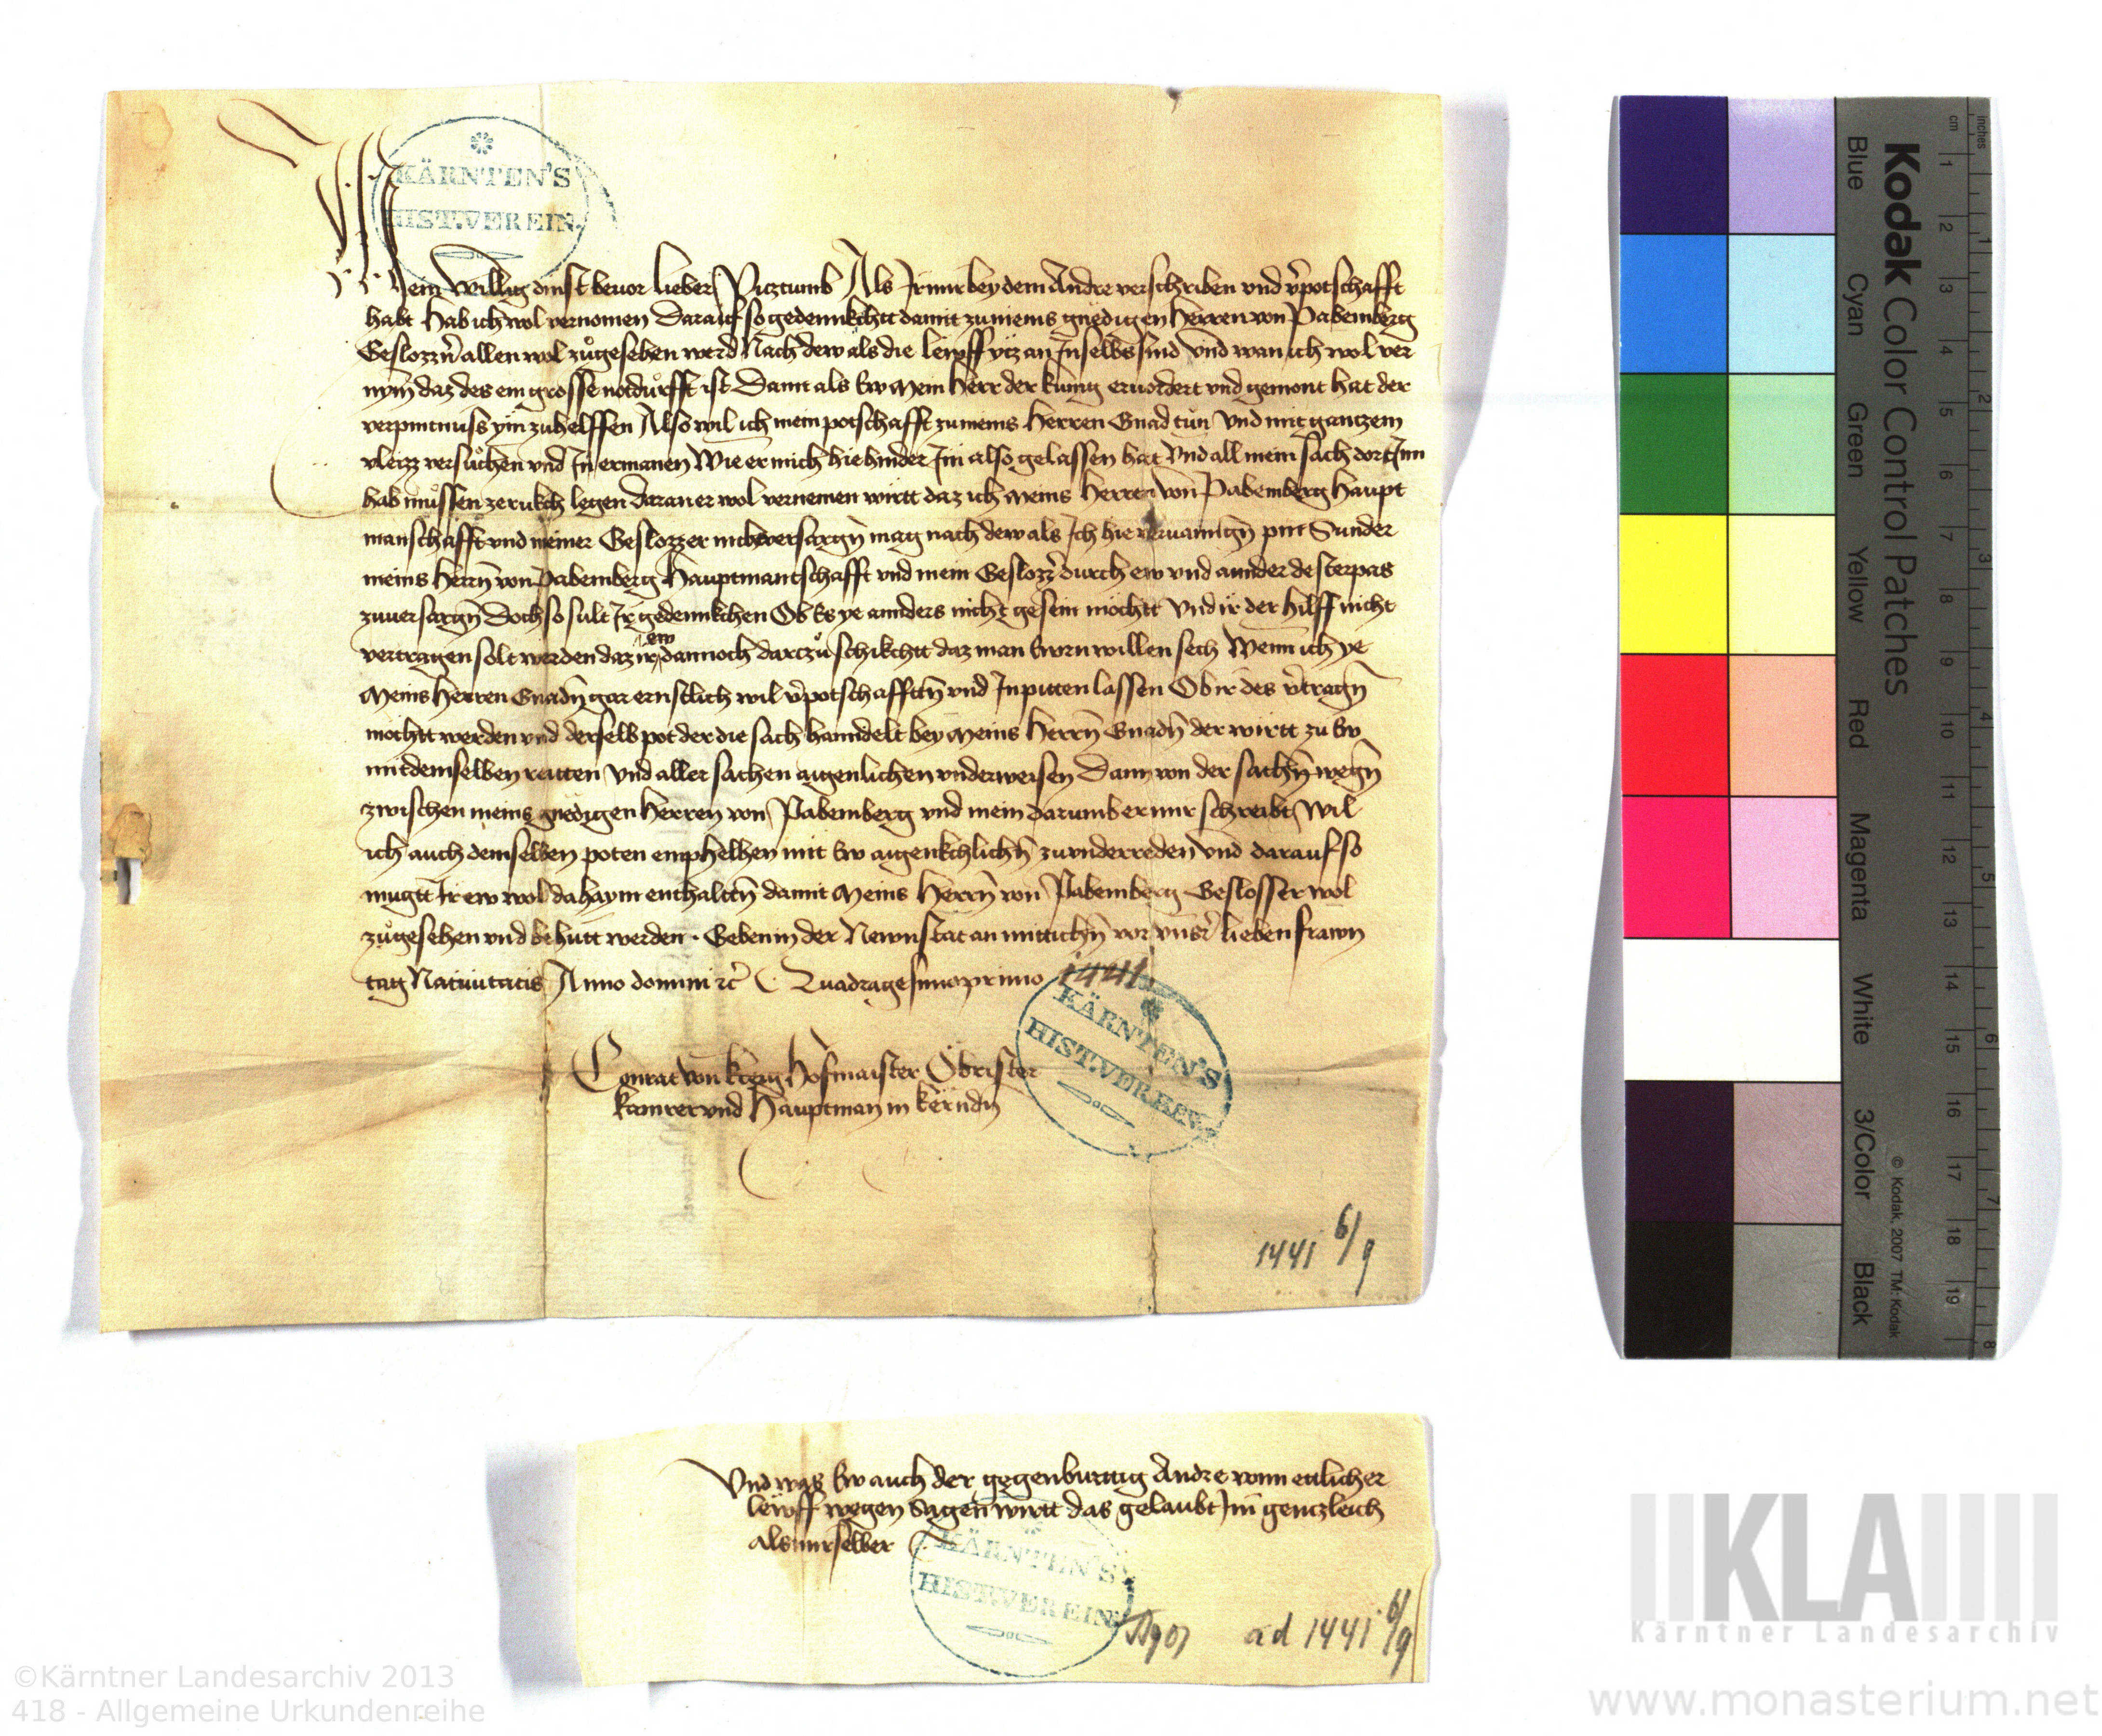 KÄRNTEN'S
HIST. VEREIN.
Mein willig dinst beuor lieber Vicztumb Als Ir mir bey dem Andre verschriben vnd v̄potschafft
habt Hab ich wol vernomen Darauf so gedennkchtt damit zu meins gnëdigen Herren von Pabemberg
Geslozzn̄ allen wol zůgesehen werd Nach dew als die lewff ytz an In selbs sind Vnd wan ich wol ver
nym̄ daz des ein grosse notdůrfft ist Dann als Ew Mein Herr der kunig eruordert vnd gemont hat der
verpintnuss ym̄ zuhelffen Also wil ich mein potschafft zu meins Herren Gnad tůn Vnd mit ganczem
vleizz versůchen vnd In ermanen Wie er mich hie hinder Im also gelassen hat Vnd all mein sach dort Inn
hab můssen zerukch legen daran er wol vernemen wirtt daz ich Meins Herren von Pabemberg Haupt
manschafft vnd meiner Geslozzer nicht versargn̄ mag nach dew als Ich hie pin Sunder
meins Herrn̄ von Pabemberg Hauptmantschafft vnd mein Geslozz durch ew vnd annder dester pas
zuuersargn̄ Doch so sult Ir gedennkchen Ob Es ye annders nicht gesein mochtt Vnd ir der hilff nicht
vertragen solt werden daz ir ew dannoch darczů schikchtt daz man Ewrn willen sech Wenn ich ye
Meins Herren Gnadn̄ gar ernstlich wil v̄potschafftn̄ vnd In pitten lassen Ob ir des v̄tragn̄
mochtt werden vnd derselb pot der die sach hanndelt bey Meins Herrn̄ Gnadn̄ der wirtt zu Ew
mit demselben reitten Vnd aller sachen aigenlichen vnderweisen Dann von der sachn̄ wegn̄
zwischen meins gnëdigen Herren von Pabemberg vnd mein darumb er mir schreibt Wil
ich auch demselben poten emphelhen mit Ew aigenkchlichn̄ zu vnderreden Vnd darauf so
mugtt Ir ew wol dahaym enthalttn̄ damit Meins Herrn̄ von Pabemberg Geslosser wol
zůgesehen vnd behutt werden · Geben in der Newnstat an mittichn̄ vor vnsr̄ lieben frawn
tag Natiuitatis Anno domini ꝛc̄ Quadragesimoprimo 1441
KÄRNTEN'S
HIST. VEREIN.
Conrat von kreig Hofmaister Öbrister
kamrer vnd Hauptman in kërndn̄
1441 6/9
Vnd was Ew auch der gegenburttig Andre vonn ettlicher
lewff wegen Sagen wirtt das gelaubt Im genczleich
als mir selber
KÄRNTEN'S
HIST. VEREIN.
ad 1441 6/9
Kodak Color Control Patches
© Kodak, 2007 TM: Kodak
Blue
Cyan
Green
Yellow
Red
Magenta
White
3/Color
Black
cm 1 2 3 4 5 6 7 8 9 10 11 12 13 14 15 16 17 18 19
inches 1 2 3 4 5 6 7 8
KLA
Kärntner Landesarchiv
©Kärntner Landesarchiv 2013
418 - Allgemeine Urkundenreihe
www.monasterium.net